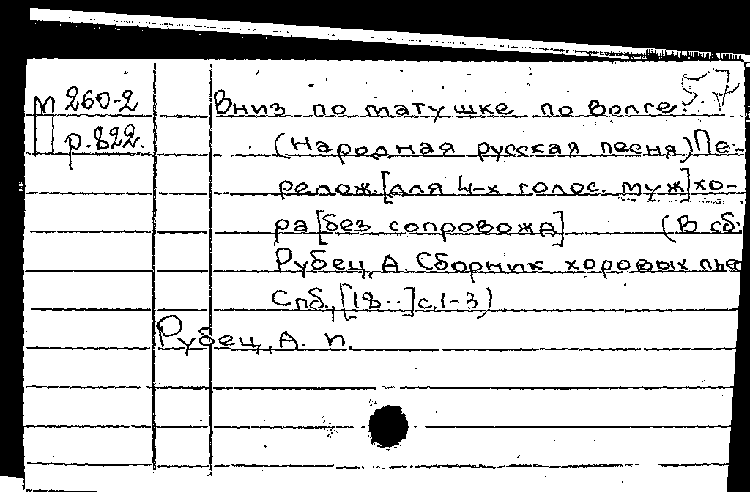 57
М 260-2 Вниз по матушке по Волге.
р.822. (Народная русская песня) Пе-
релож. [для 4-х голос. муж] хо-
ра [без сопровожд] (В сб:
Рубец, А. Сборник хоровых пье
Спб., [18..] с.1-3)
Рубец, А. п.